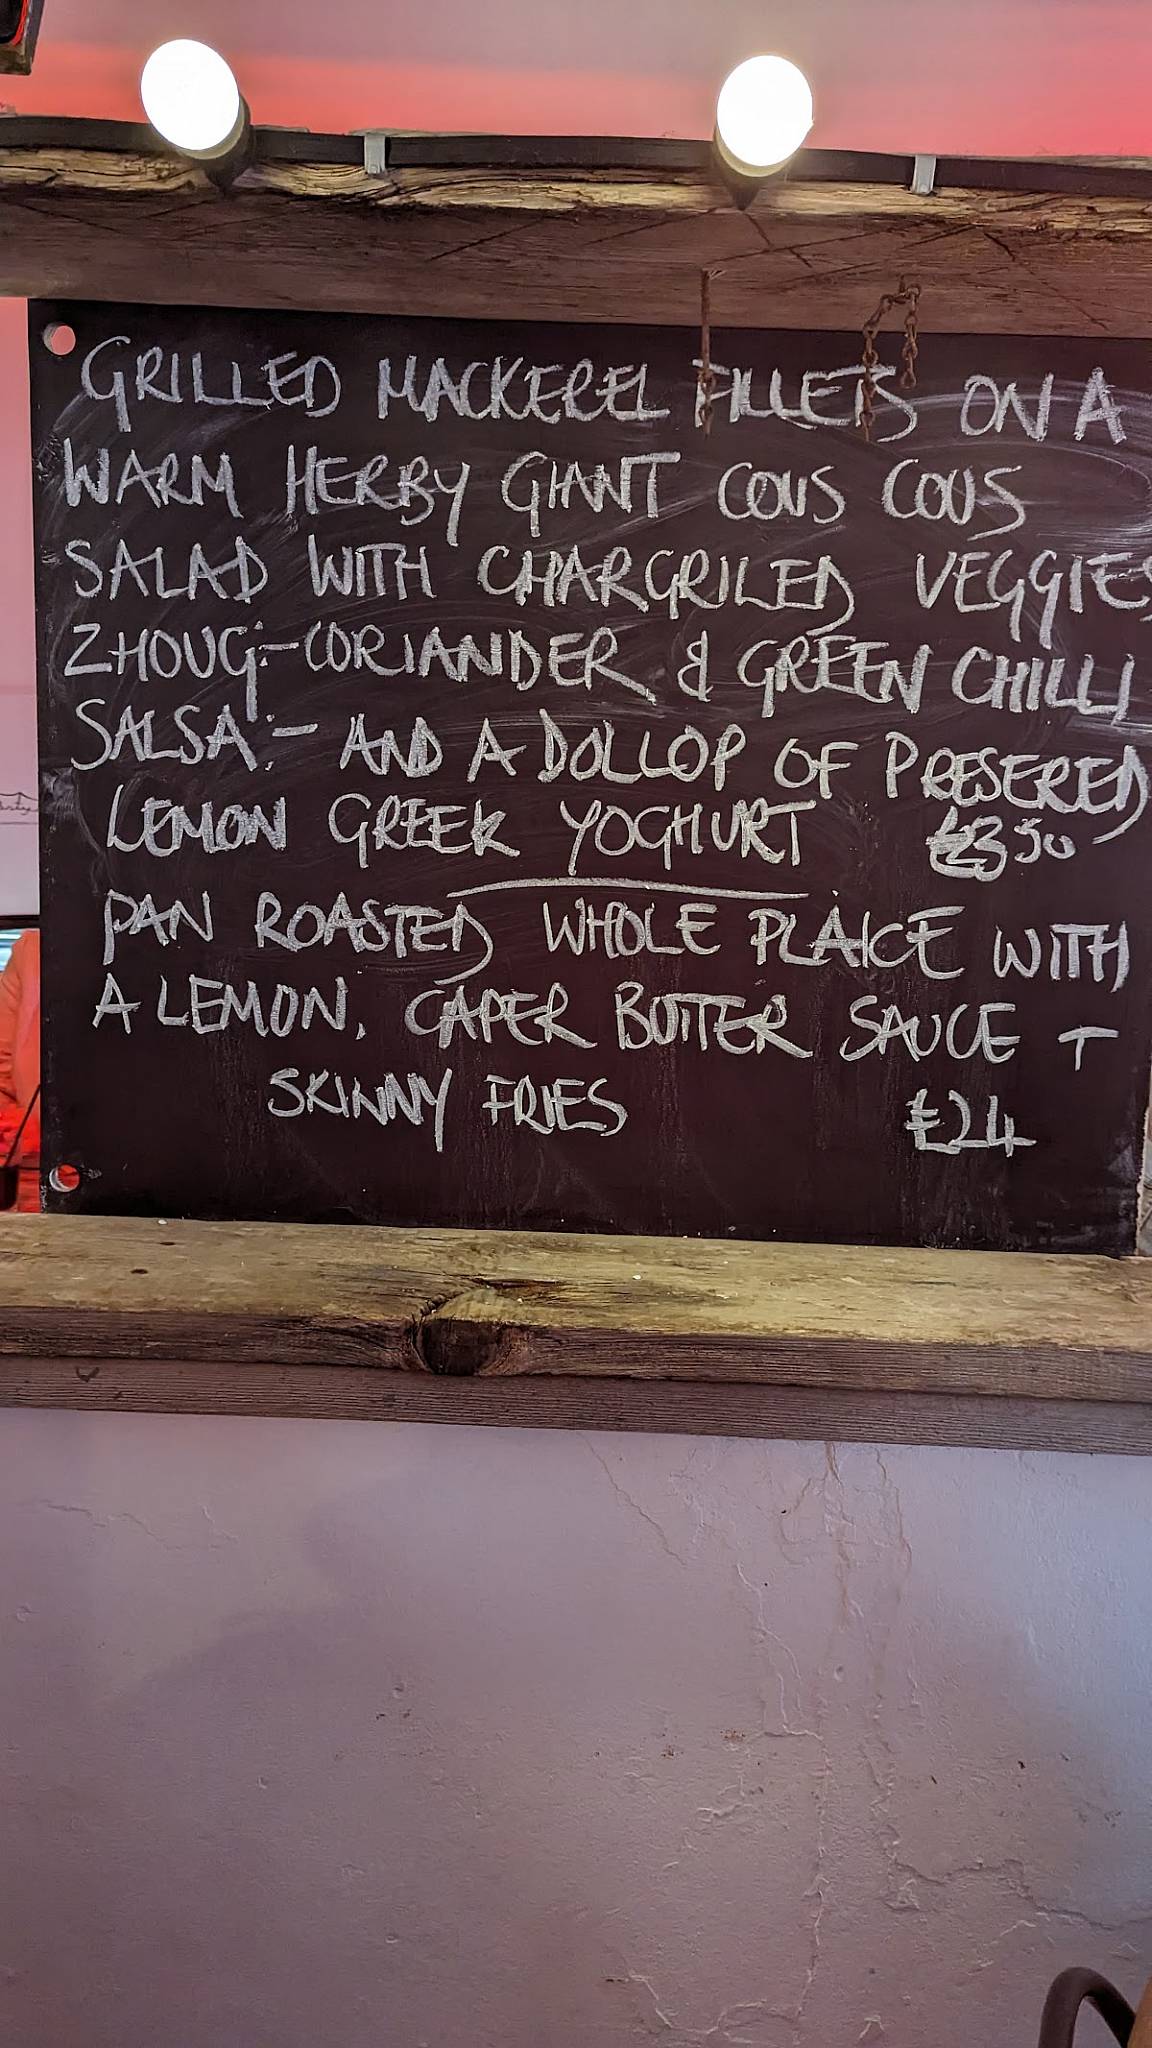 GRILLED MACKEREL FILLETS ON A
WARM HERBY GIANT COUS COUS
SALAD WITH CHARGRILED VEGGIES
ZHOUG:- CORIANDER & GREEN CHILLI
SALSA:- AND A DOLLOP OF PRESERED
LEMON GREEK YOGHURT
PAN ROASTED WHOLE PLAICE WITH
A LEMON, CAPER BUTTER SAUCE +
SKINNY FRIES £24